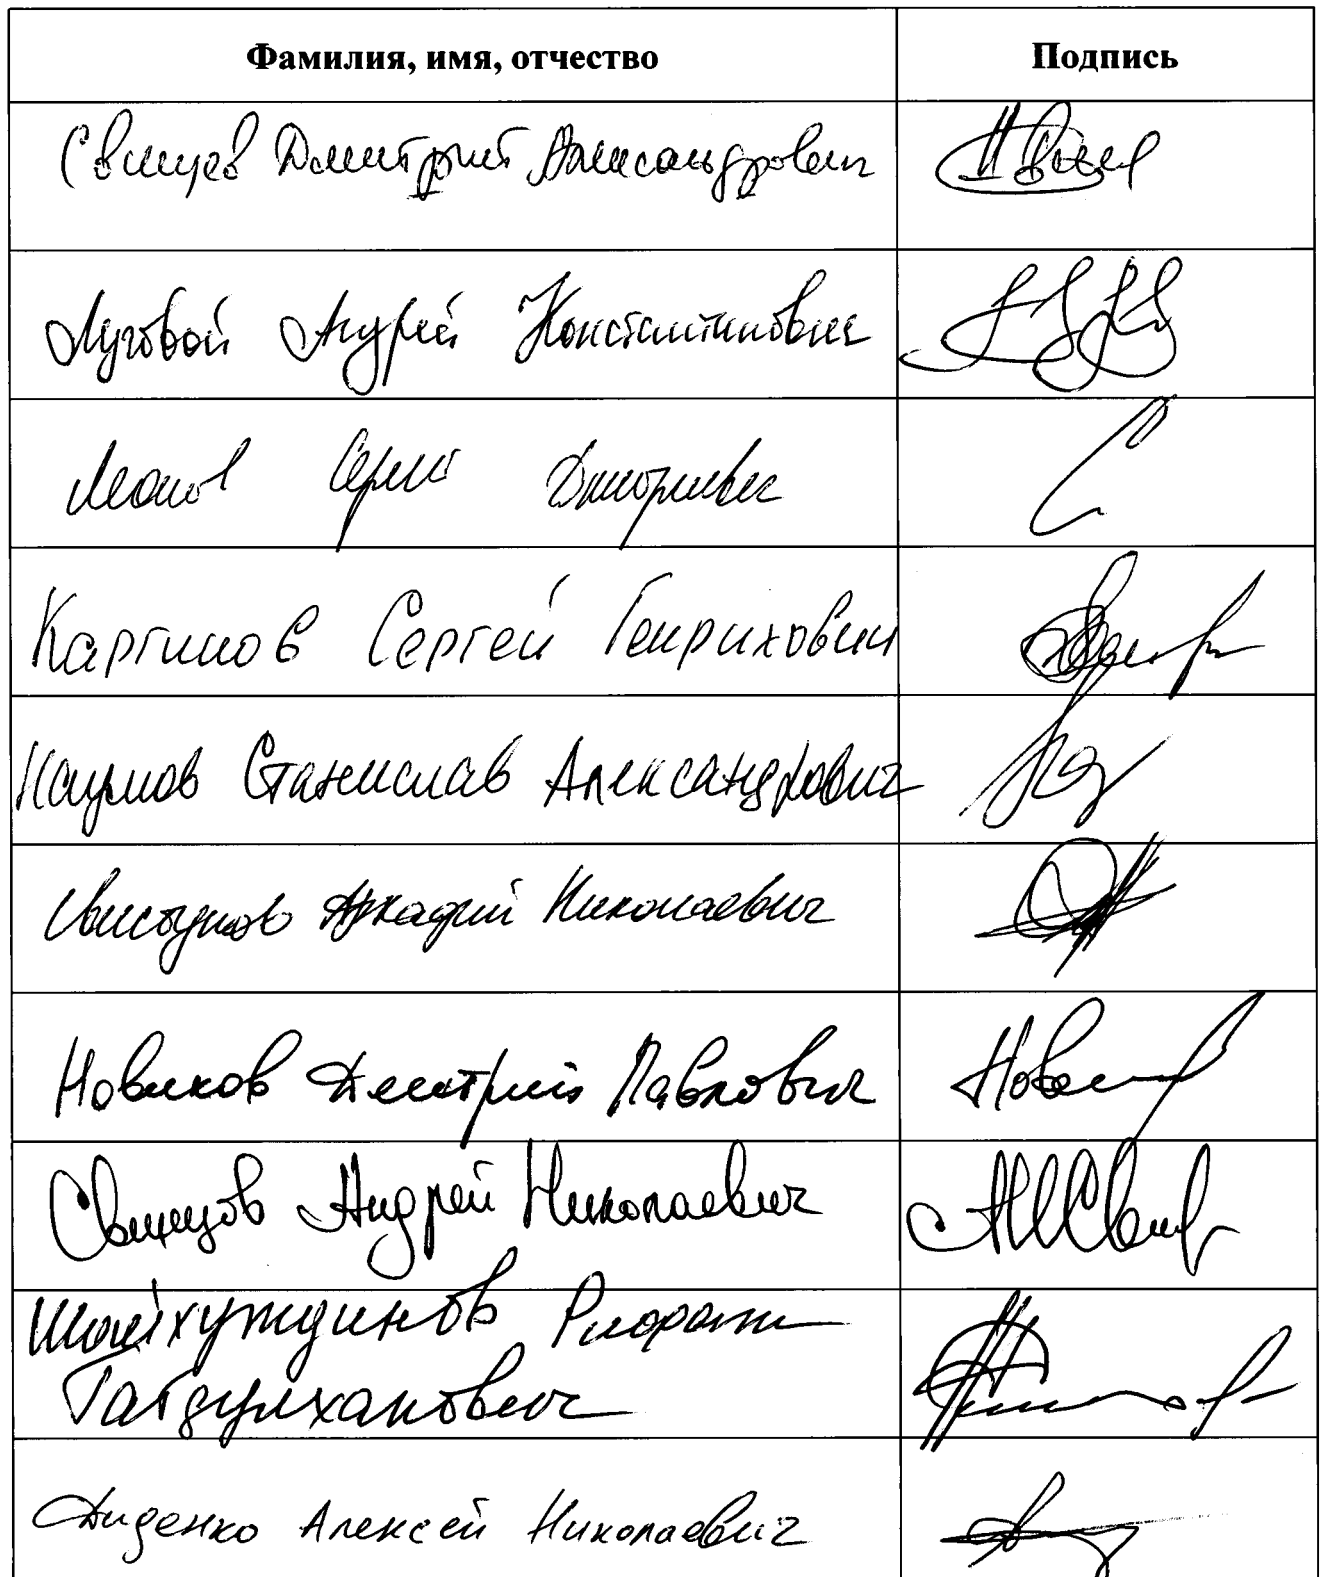 Фамилия, имя, отчество Подпись
Свищев Дмитрий Александрович
Луговой Андрей Константинович
Леонов Сергей Дмитриевич
Каргинов Сергей Генрихович
Наумов Станислав Александрович
Свистунов Аркадий Николаевич
Новиков Дмитрий Павлович
Свинцов Андрей Николаевич
Шайхутдинов
Габдулханович
Диденко Алексей Николаевич